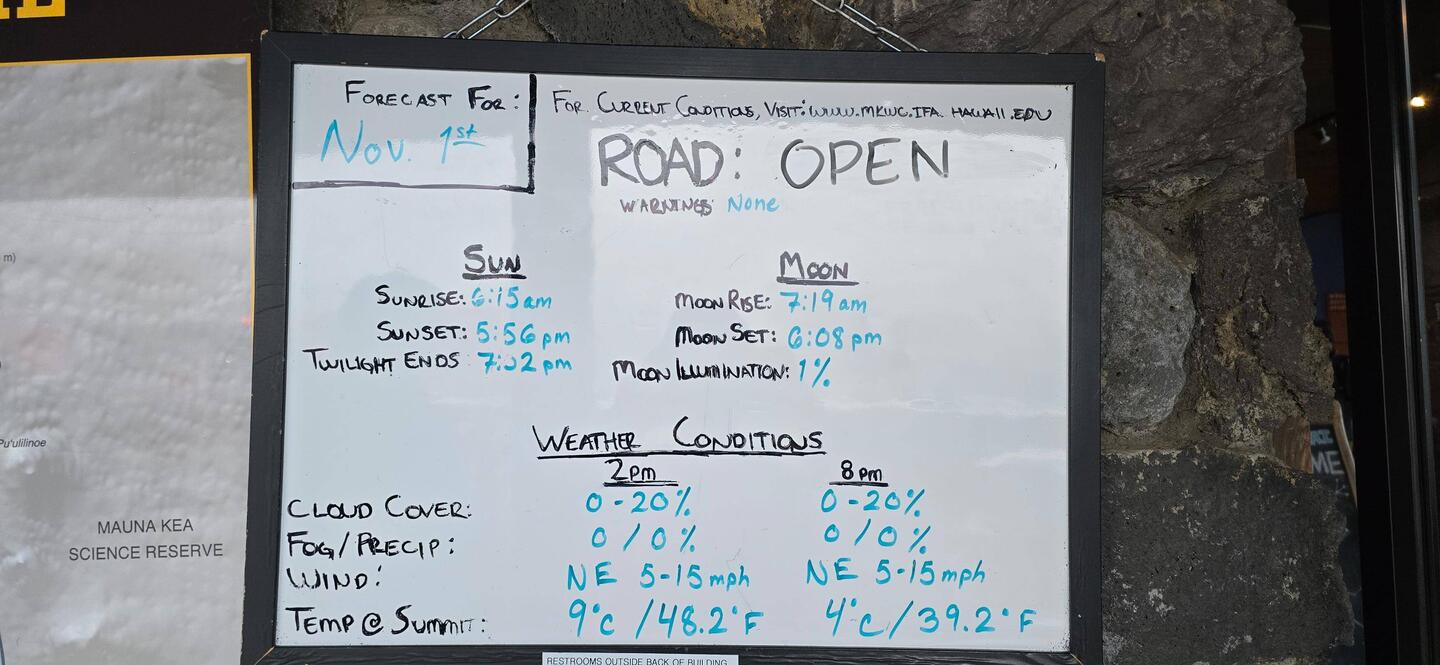 FORECAST FOR:
Nov. 1st
FOR CURRENT CONDITIONS, VISIT: WWW.MKWC.IFA.HAWAII.EDU
ROAD: OPEN
WARNINGS: None
SUN
SUNRISE: 6:15am
SUNSET: 5:56pm
TWILIGHT ENDS: pm
MOON
MOON RISE: 7:19am
MOON SET: 6:08pm
MOON ILLUMINATION: 1%
WEATHER CONDITIONS
2pm 8pm
CLOUD COVER: 0-20% 0-20%
FOG/PRECIP: 0/0% 0/0%
WIND: NE 5-15mph NE 5-15mph
TEMP @ SUMMIT: 9°C/48.2°F 4°C/39.2°F
RESTROOMS OUTSIDE BACK OF BUILDING
m)
Pu'ulilinoe
MAUNA KEA
SCIENCE RESERVE
ME